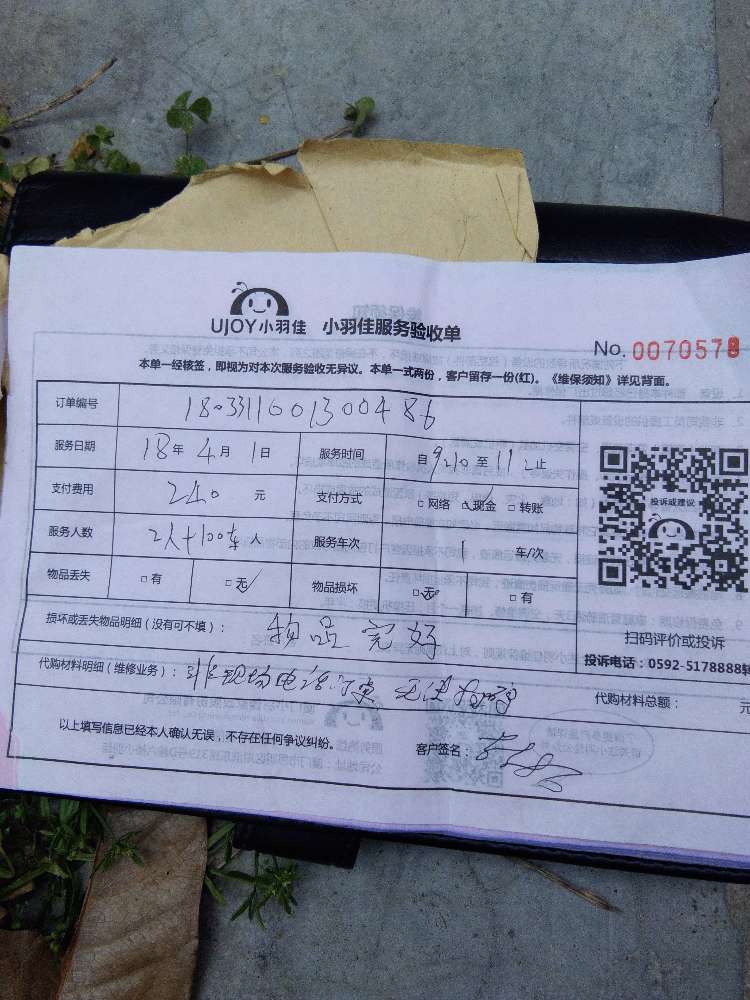 UJOY小羽佳 小羽佳服务验收单
No. 0070578
本单一经核签，即视为对本次服务验收无异议。本单一式两份，客户留存一份(红)。《维保须知》详见背面。
订单编号 1803311601300486
服务日期 18年4月1日 服务时间 自9:10至11:2止
支付费用 240元 支付方式 □网络 □现金 □转账
服务人数 2人+100车人 服务车次 1 车/次
物品丢失 □有 □无 物品损坏 □无 □有
投诉或建议
损坏或丢失物品明细（没有可不填）： 物品完好
扫码评价或投诉
投诉电话：0592-5178888转
代购材料明细（维修业务）： 非现场电话 代购材料总额： 元
以上填写信息已经本人确认无误，不存在任何争议纠纷。 客户签名：